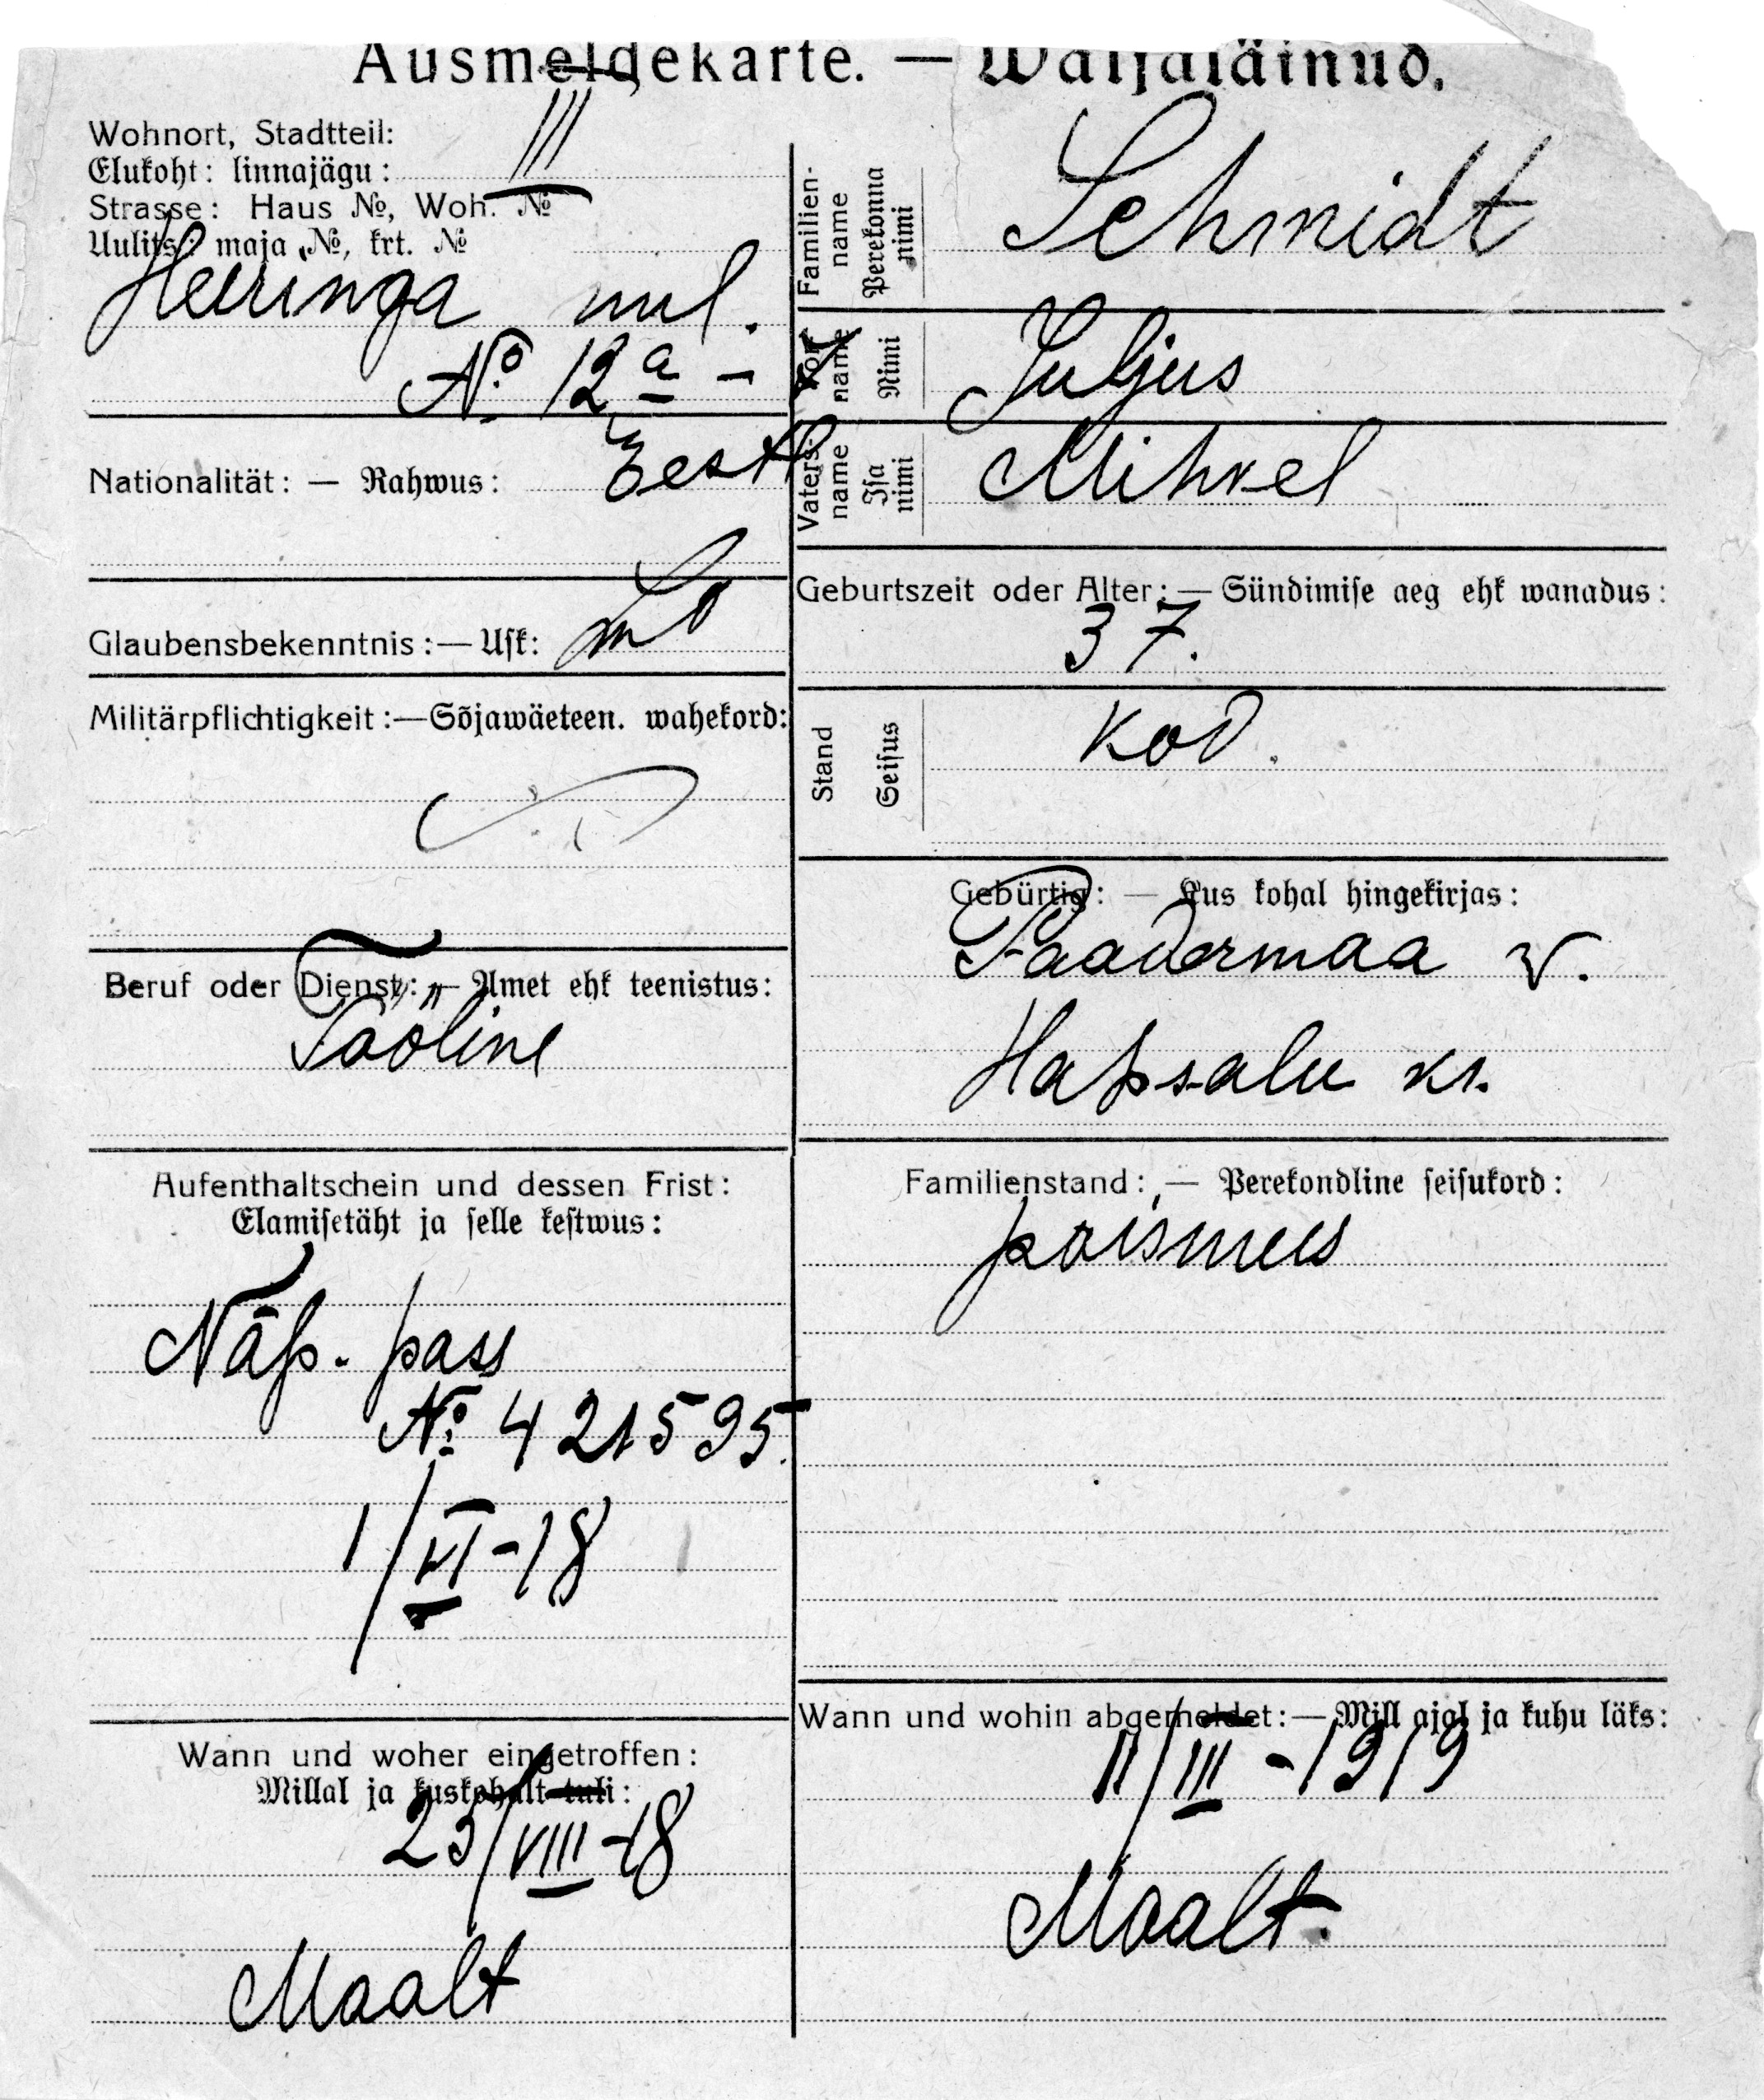 Ausmeldekarte. — Wäljaläinud.
Wohnort, Stadtteil:
Elukoht: linnajägu: III
Strasse: Haus №, Woh. №
Uulits: maja №, krt. №
Heeringa uul.
№ 12a –
Nationalität: — Rahwus: Eestl
Glaubensbekenntnis:— Usk:
Militärpflichtigkeit:—Sõjawäeteen. wahekord:
Beruf oder Dienst: — Amet ehk teenistus:
Tööline
Aufenthaltschein und dessen Frist:
Elamisetäht ja selle kestwus:
Näp. pass
№ 421595.
1/VI-18
Wann und woher eingetroffen:
Millal ja kuskohalt tuli:
23/VIII-18
Maalt
Familien-
name
Perekonna
nimi
Schmidt
Vor-
name
Nimi
Juljus
Vaters-
name
Isa
nimi
Mihkel
Geburtszeit oder Alter: — Sündimise aeg ehk wanadus:
37.
Stand
Seisus
kod.
Gebürtig: — Kus kohal hingekirjas:
Paadermaa v.
Hapsalu kr.
Familienstand: — Perekondline seisukord:
poismees
Wann und wohin abgemeldet:—Mill ajal ja kuhu läks:
11/III-1919
Maalt.